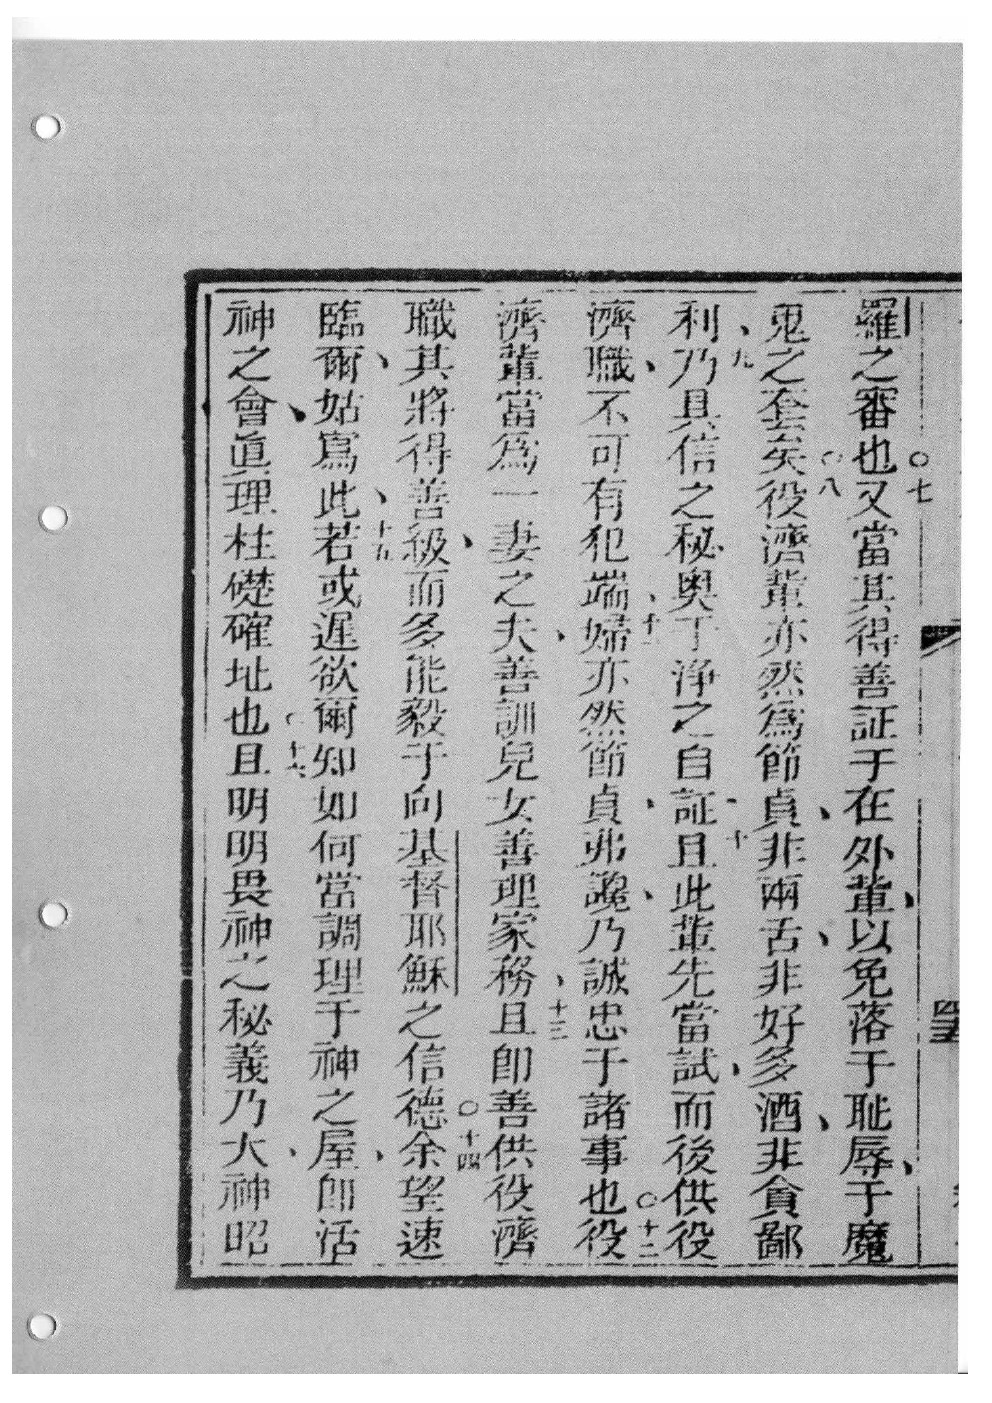 羅之審也又當其得善証于在外輩以免落于耻辱于魔
鬼之套矣役濟輩亦然為節貞非兩舌非好多酒非貪鄙
利乃具信之秘奧于淨之自証且此輩先當試而後供役
濟職不可有犯端婦亦然節貞弗讒乃誠忠于諸事也役
濟輩當為一妻之夫善訓兒女善理家務且卽善供役濟
職其將得善級而多能毅于向基督耶穌之信德余望速
臨爾姑寫此若或遲欲爾知如何當調理于神之屋卽活
神之會眞理柱礎確址也且明明畏神之秘義乃大神昭
七
八
九
十
十一
十二
十三
十四
十五
十六